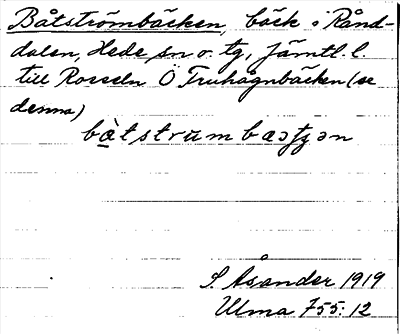 Båtströmbäcken, bäck i Rånd-
dalen, Hede sn o. tg, Jämtl. l.
till Rosseln Ö Truhågnbäcken (se
denna)
bàtstrumbæɔtʃɔn
S. Åsander 1919
Ulma 755:12